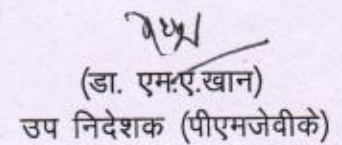 (डा. एम.ए.खान)
उप निदेशक (पीएमजेवीके)